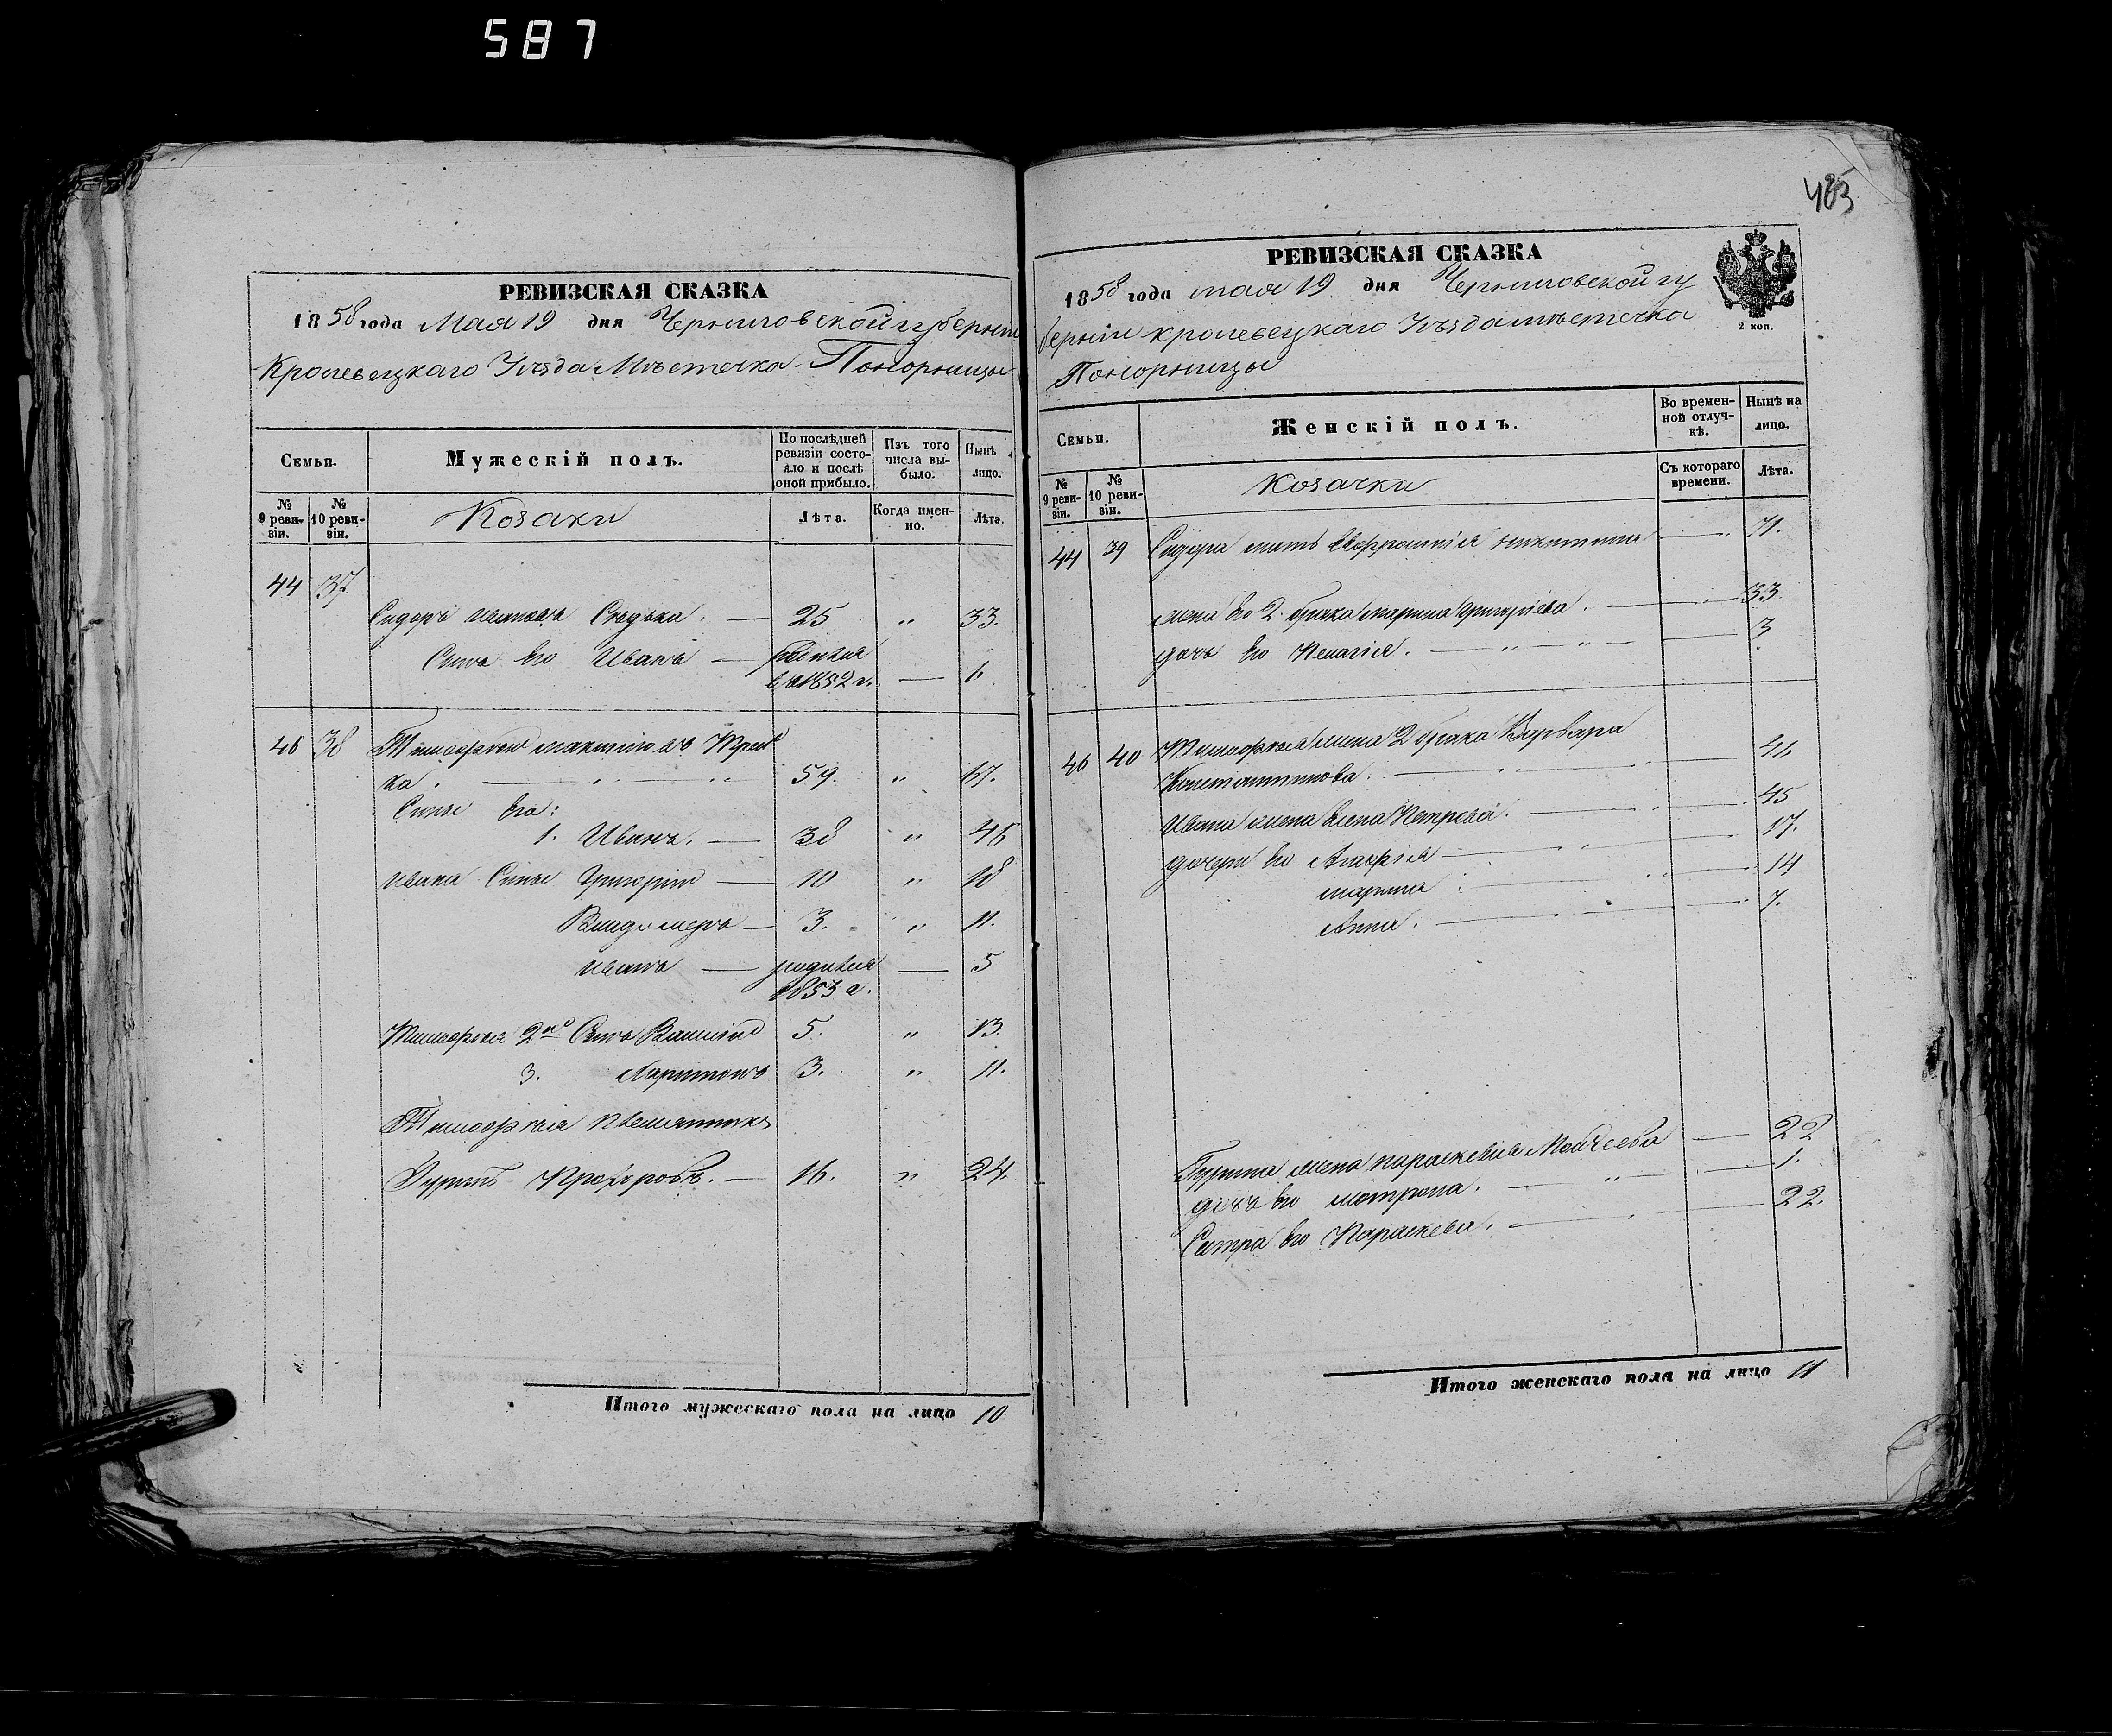 587
485
РЕВИЗСКАЯ СКАЗКА
1858 года Мая 19 дня Черниговской губерніи
Кролевецкаго Уѣзда Мѣстечка Понорницы
Семьи.
Мужескій полъ.
По послѣдней ревизіи состояло и послѣ оной прибыло.
Изъ того числа выбыло.
Нынѣ лицо.
№ 9 ревизіи.
№ 10 ревизіи.
Козаки
Лѣта.
Когда именно.
Лѣта.
44 37.
Сидоръ 25 " 33.
Сынъ его Иванъ —
1852 г. — 1.
46 38
ка. 59. " 67.
Сыны его:
1. Иванъ. — 38 " 46
Ивана Сыны Григорій — 10 " 18
Владимеръ — 3. " 11.
Иванъ — родился — 5
1853 г.
Тимофея 2й Сынъ Василій 5. " 13.
3. Харитонъ 3. " 11.
Тимофея племянникъ
Гурій Прохоровъ. — 16. " 24.
Итого мужескаго пола на лицо 10
РЕВИЗСКАЯ СКАЗКА
1858 года мая 19 дня Черниговской гу
берніи кролевецкаго Уѣзда мѣстечка
Понорницы
2 коп.
Семьи.
Женскій полъ.
Во временной отлучкѣ.
Нынѣ на лицо.
№ 9 ревизіи.
№ 10 ревизіи.
Козачки
Съ котораго времени.
Лѣта.
44 39 Сидора мать — 71.
жена его 2 брака марина григоріева. — 33.
дочь его Пелагія. — " — " — 3
46 40 Тимофея жена 2 брака Варвара
Константинова. — 46
Ивана жена Елена Петрова. — 45
дочери его Агафія — 17.
марина — 14
Анна. — 7.
жена параскевія Моисеева — 22
дочь его матрона. — " — 1.
Сестра его Параскева. — 22.
Итого женскаго пола на лицо 11